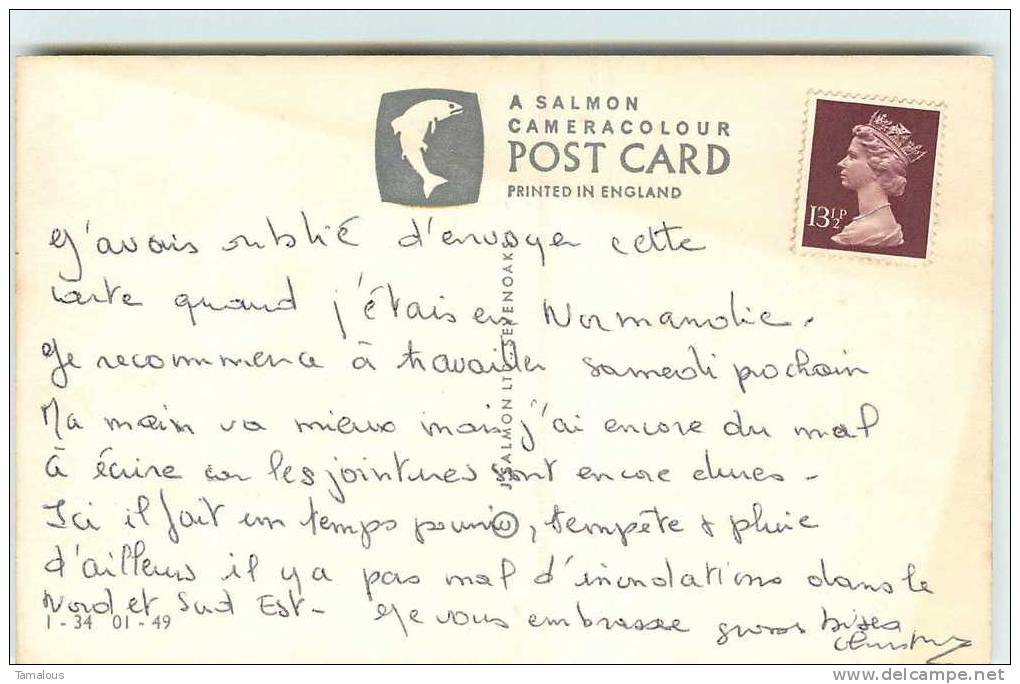 A SALMON
CAMERACOLOUR
POST CARD
PRINTED IN ENGLAND
13½P
J'avais oublié d'envoyer cette
carte quand j'étais en Normandie.
Je recommence à travailler samedi prochain
Ma main va mieux mais j'ai encore du mal
à écrire car les jointures sont encore dures -
Ici il fait un temps pourri, tempête & pluie
d'ailleurs il y a pas mal d'inondations dans le
Nord et Sud Est - Je vous embrasse grosses bises
J. SALMON LTD. SEVENOAKS
1 - 34 01 - 49
Tamalous
delcampe.net